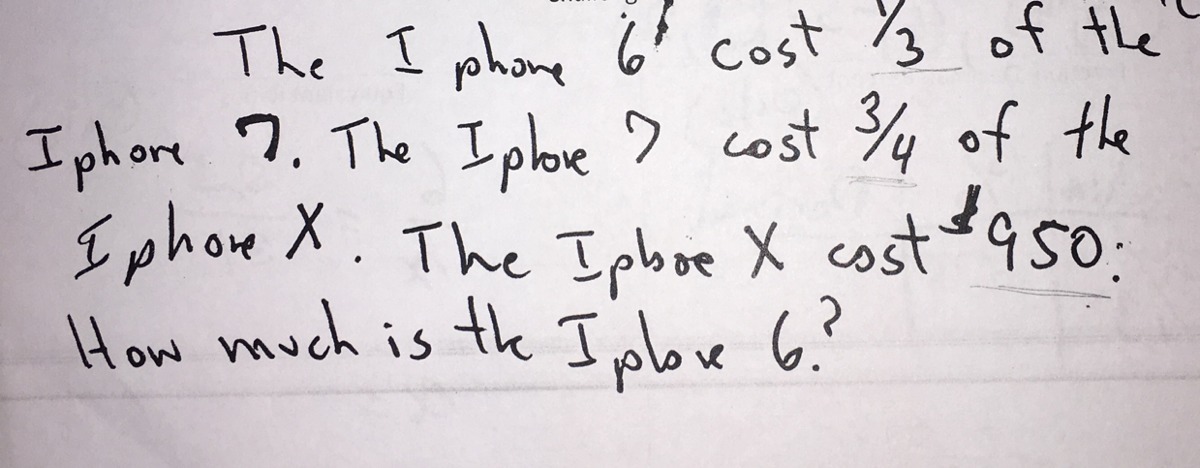 The I phone 6 cost 1/3 of the
Iphone 7. The Iphone 7 cost 3/4 of the
Iphone X. The Iphone X cost $950.
How much is the Iphone 6?